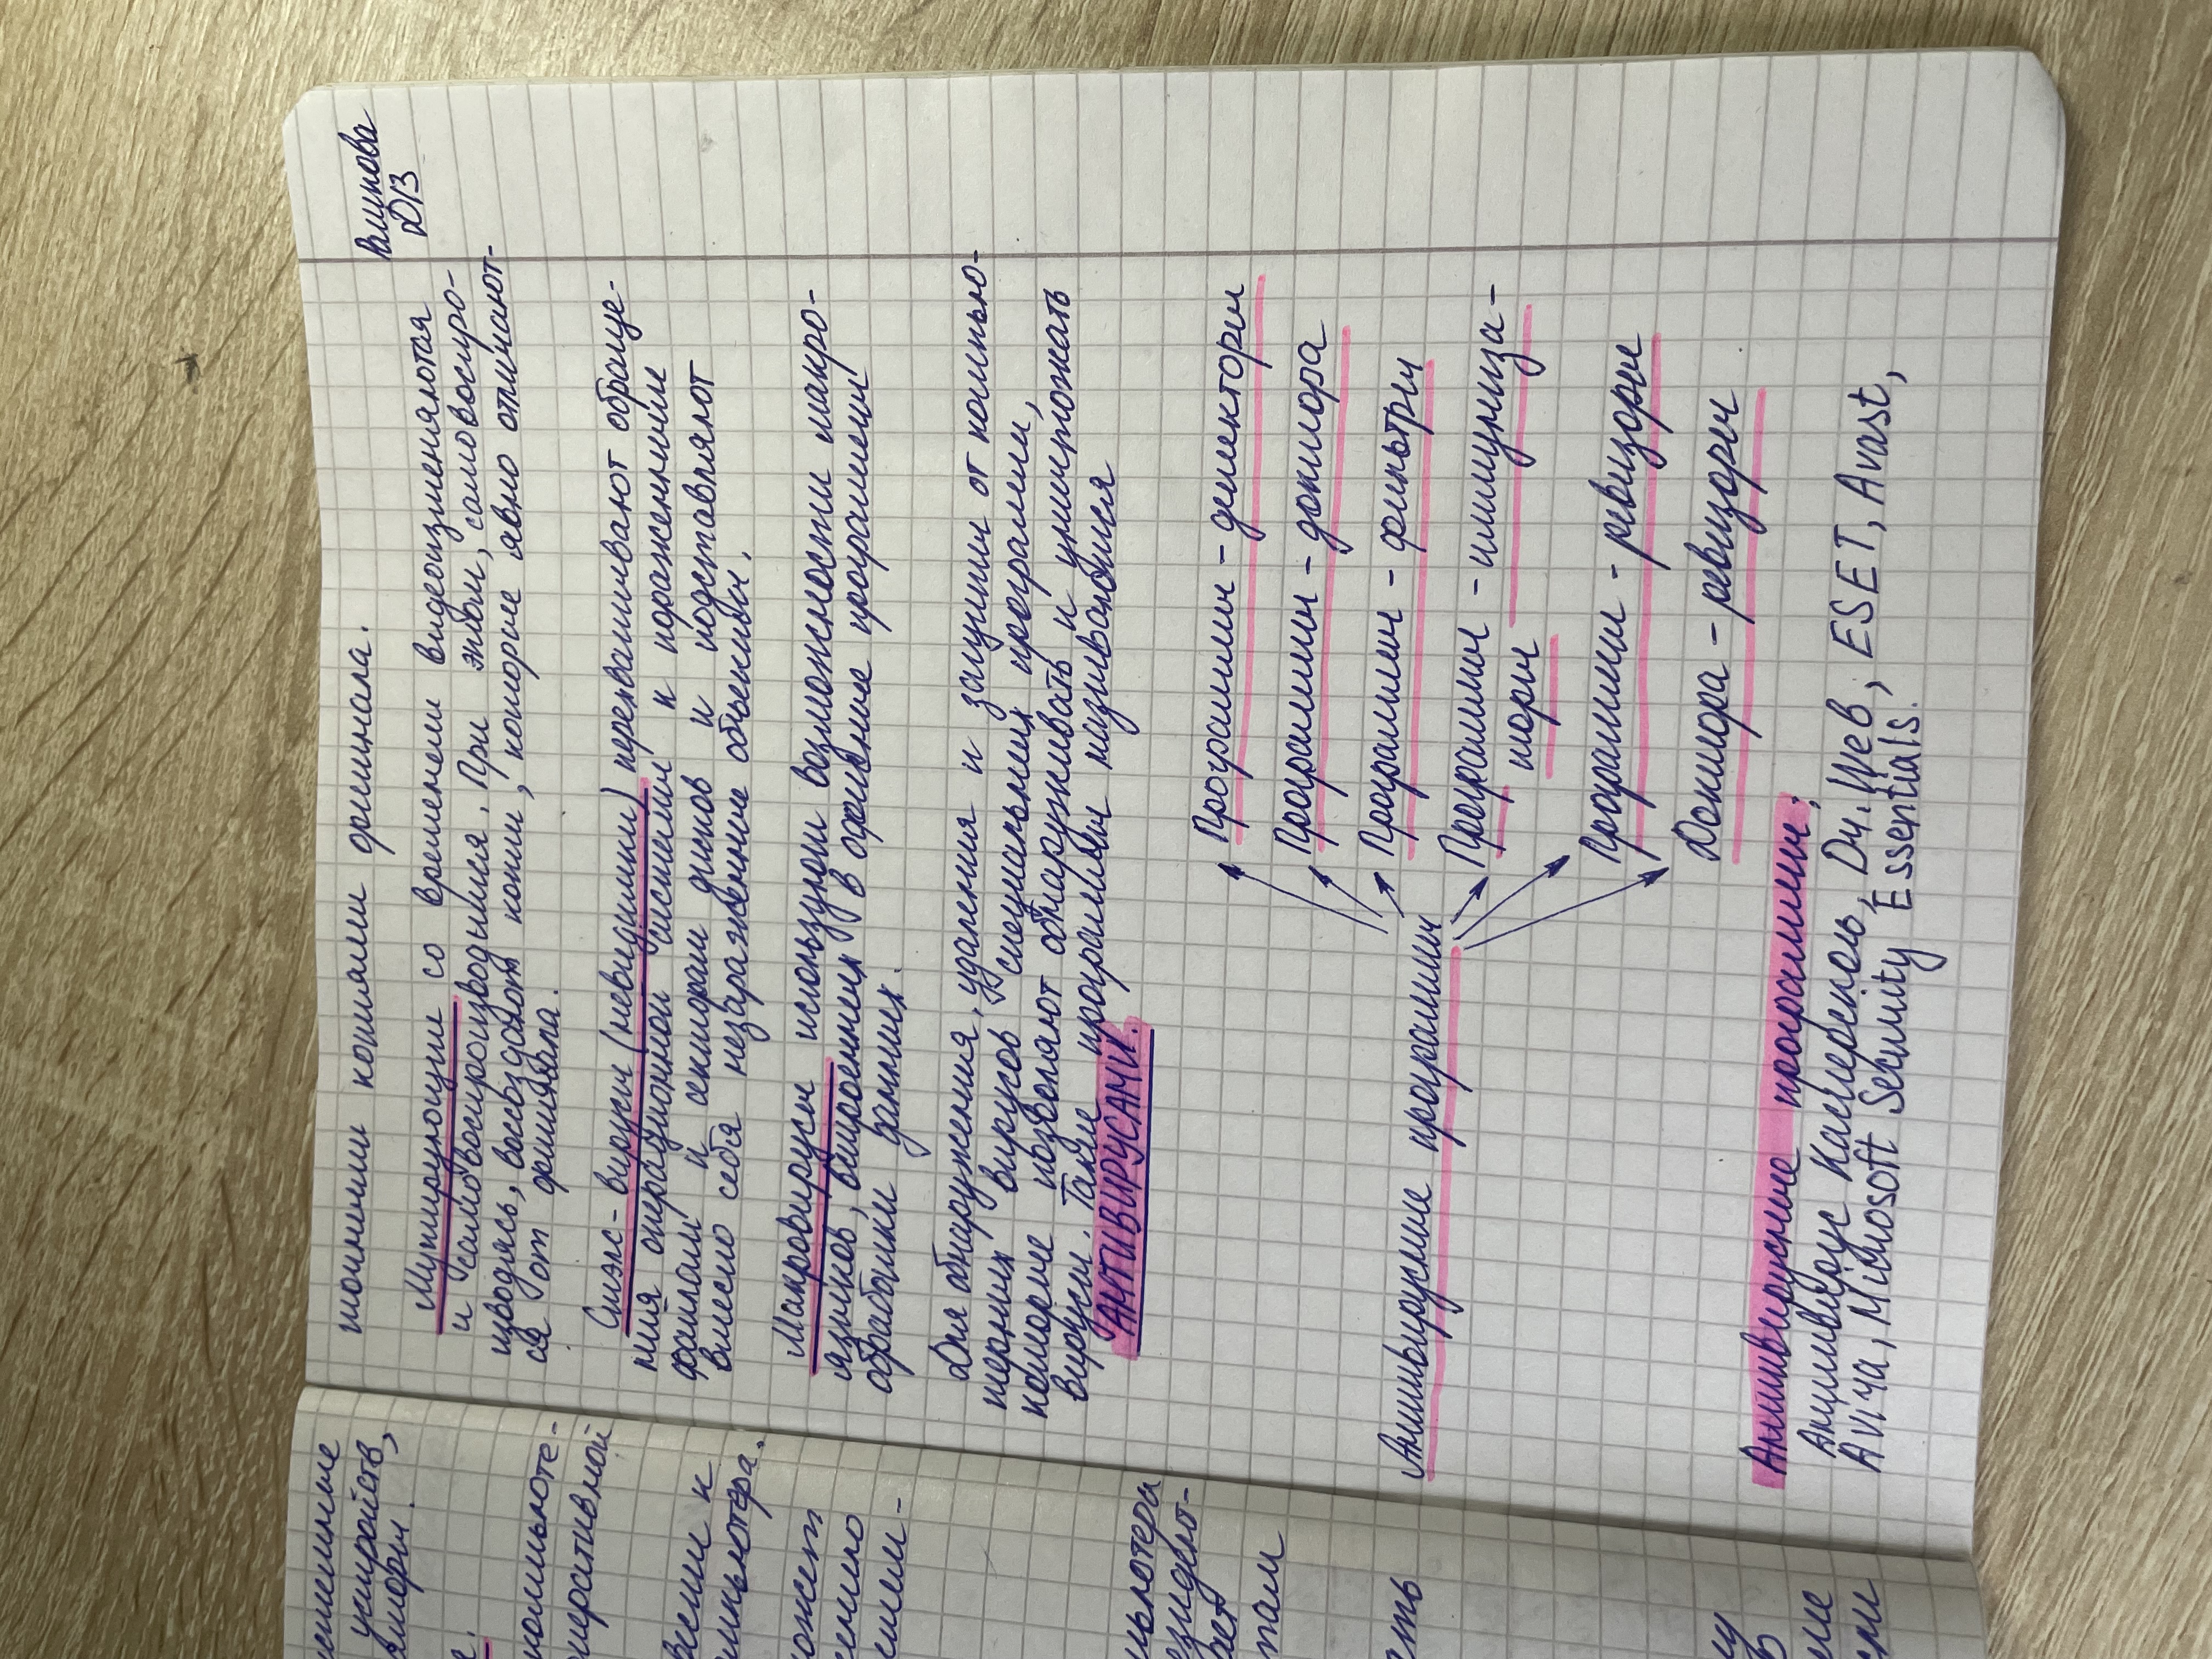 Вшнова
D13
точными копиями оригинала.
Мутирующие со временем видеоизменяются
и самовоспроизводились. При этом, самовоспро-
изводясь, воссоздают копии, которые явно отличают-
ся от оригинала.
Стэлс-вирусы (невидимки) перехватывают обраще-
ния операционной системы к пораженными
файлам и секторам дисков и подставляют
вместо себя незараженные объекты.
Макровирусы используют возможности макро-
языков, встроенных в офисные программы
обработки данных.
Для обнаружения, удаления и защиты от компью-
терных вирусов специальных программ,
которые позволяют обнаруживать и уничтожать
вирусы. Такие программы назывались
АНТИВИРУСАМИ.
Антивирусные программы
Программы - детекторы
Программы - доктора
Программы - фильтры
Программы - иммуниза-
торы
Программы - ревизоры
Доктора - ревизоры
Антивирусные программы:
Антивирус Касперский, Dr. Web, ESET, Avast,
Avira, Microsoft Security Essentials.
устройств,
компьюте-
оперативной
компьютера.